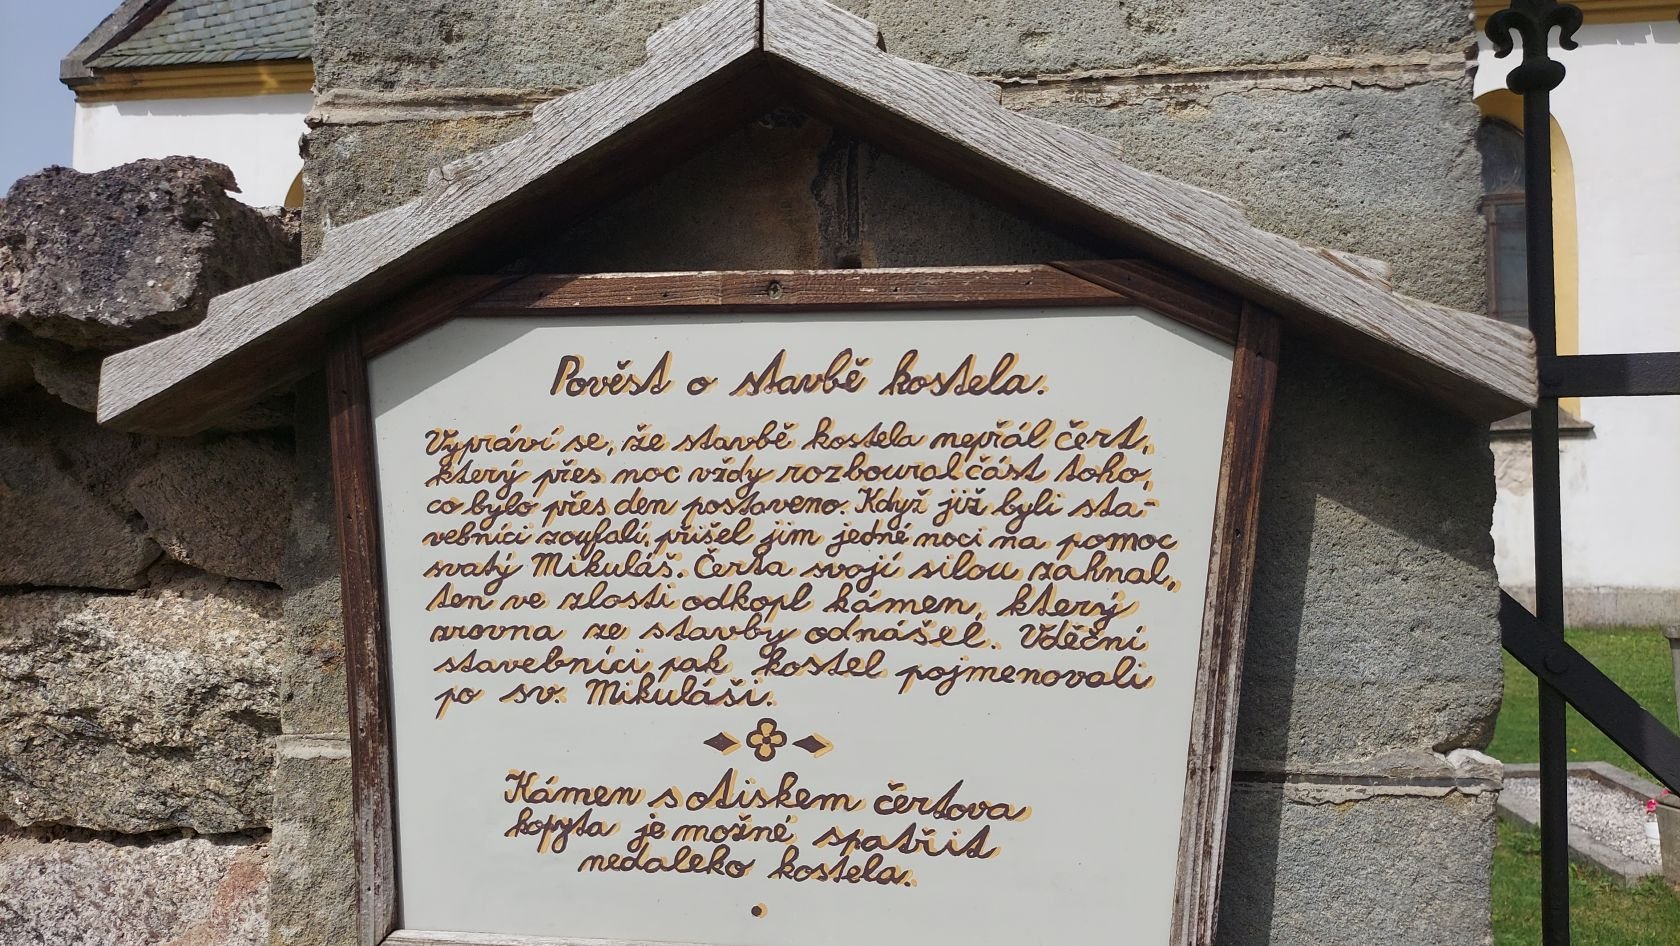 Pověst o stavbě kostela.
Vypráví se, že stavbě kostela nepřál čert,
který přes noc vždy rozboural část toho,
co bylo přes den postaveno. Když již byli sta-
vebníci zoufalí, přišel jim jedné noci na pomoc
svatý Mikuláš. Čerta svojí silou zahnal,
ten ve zlosti odkopl kámen, který
zrovna ze stavby odnášel. Vděční
stavebníci pak kostel pojmenovali
po sv. Mikuláši.
Kámen s otiskem čertova
kopyta je možné spatřit
nedaleko kostela.